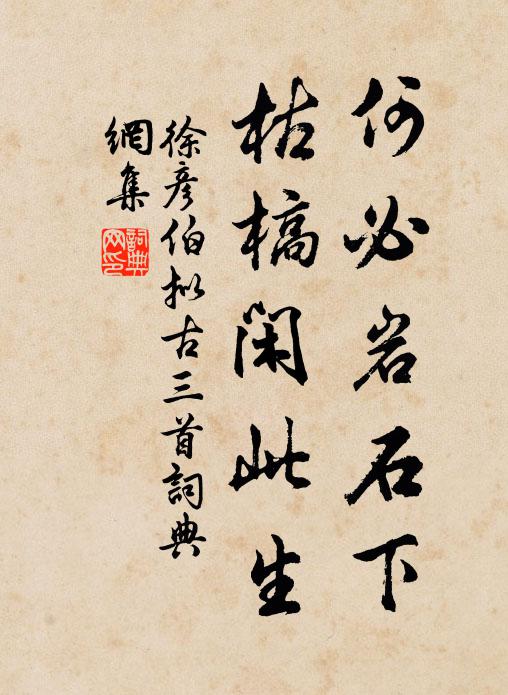 何必岩石下
枯槁閑此生
徐彦伯拟古三首詞典
網集
詞典
网印